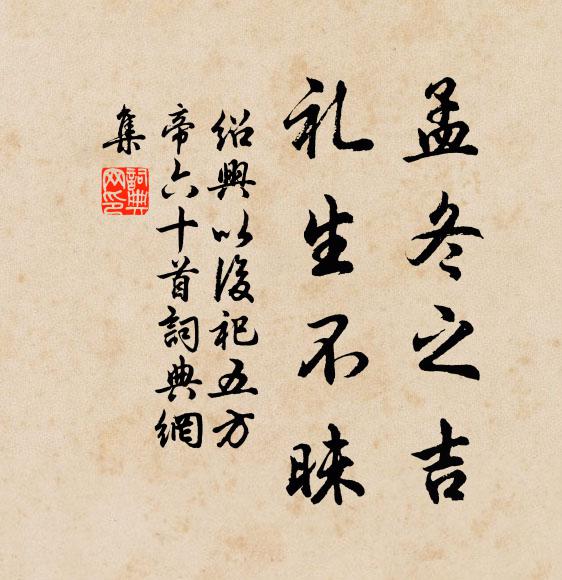 孟冬之吉
礼生不昧
绍興以後祀五方
帝六十首詞典網
集
詞典
网印